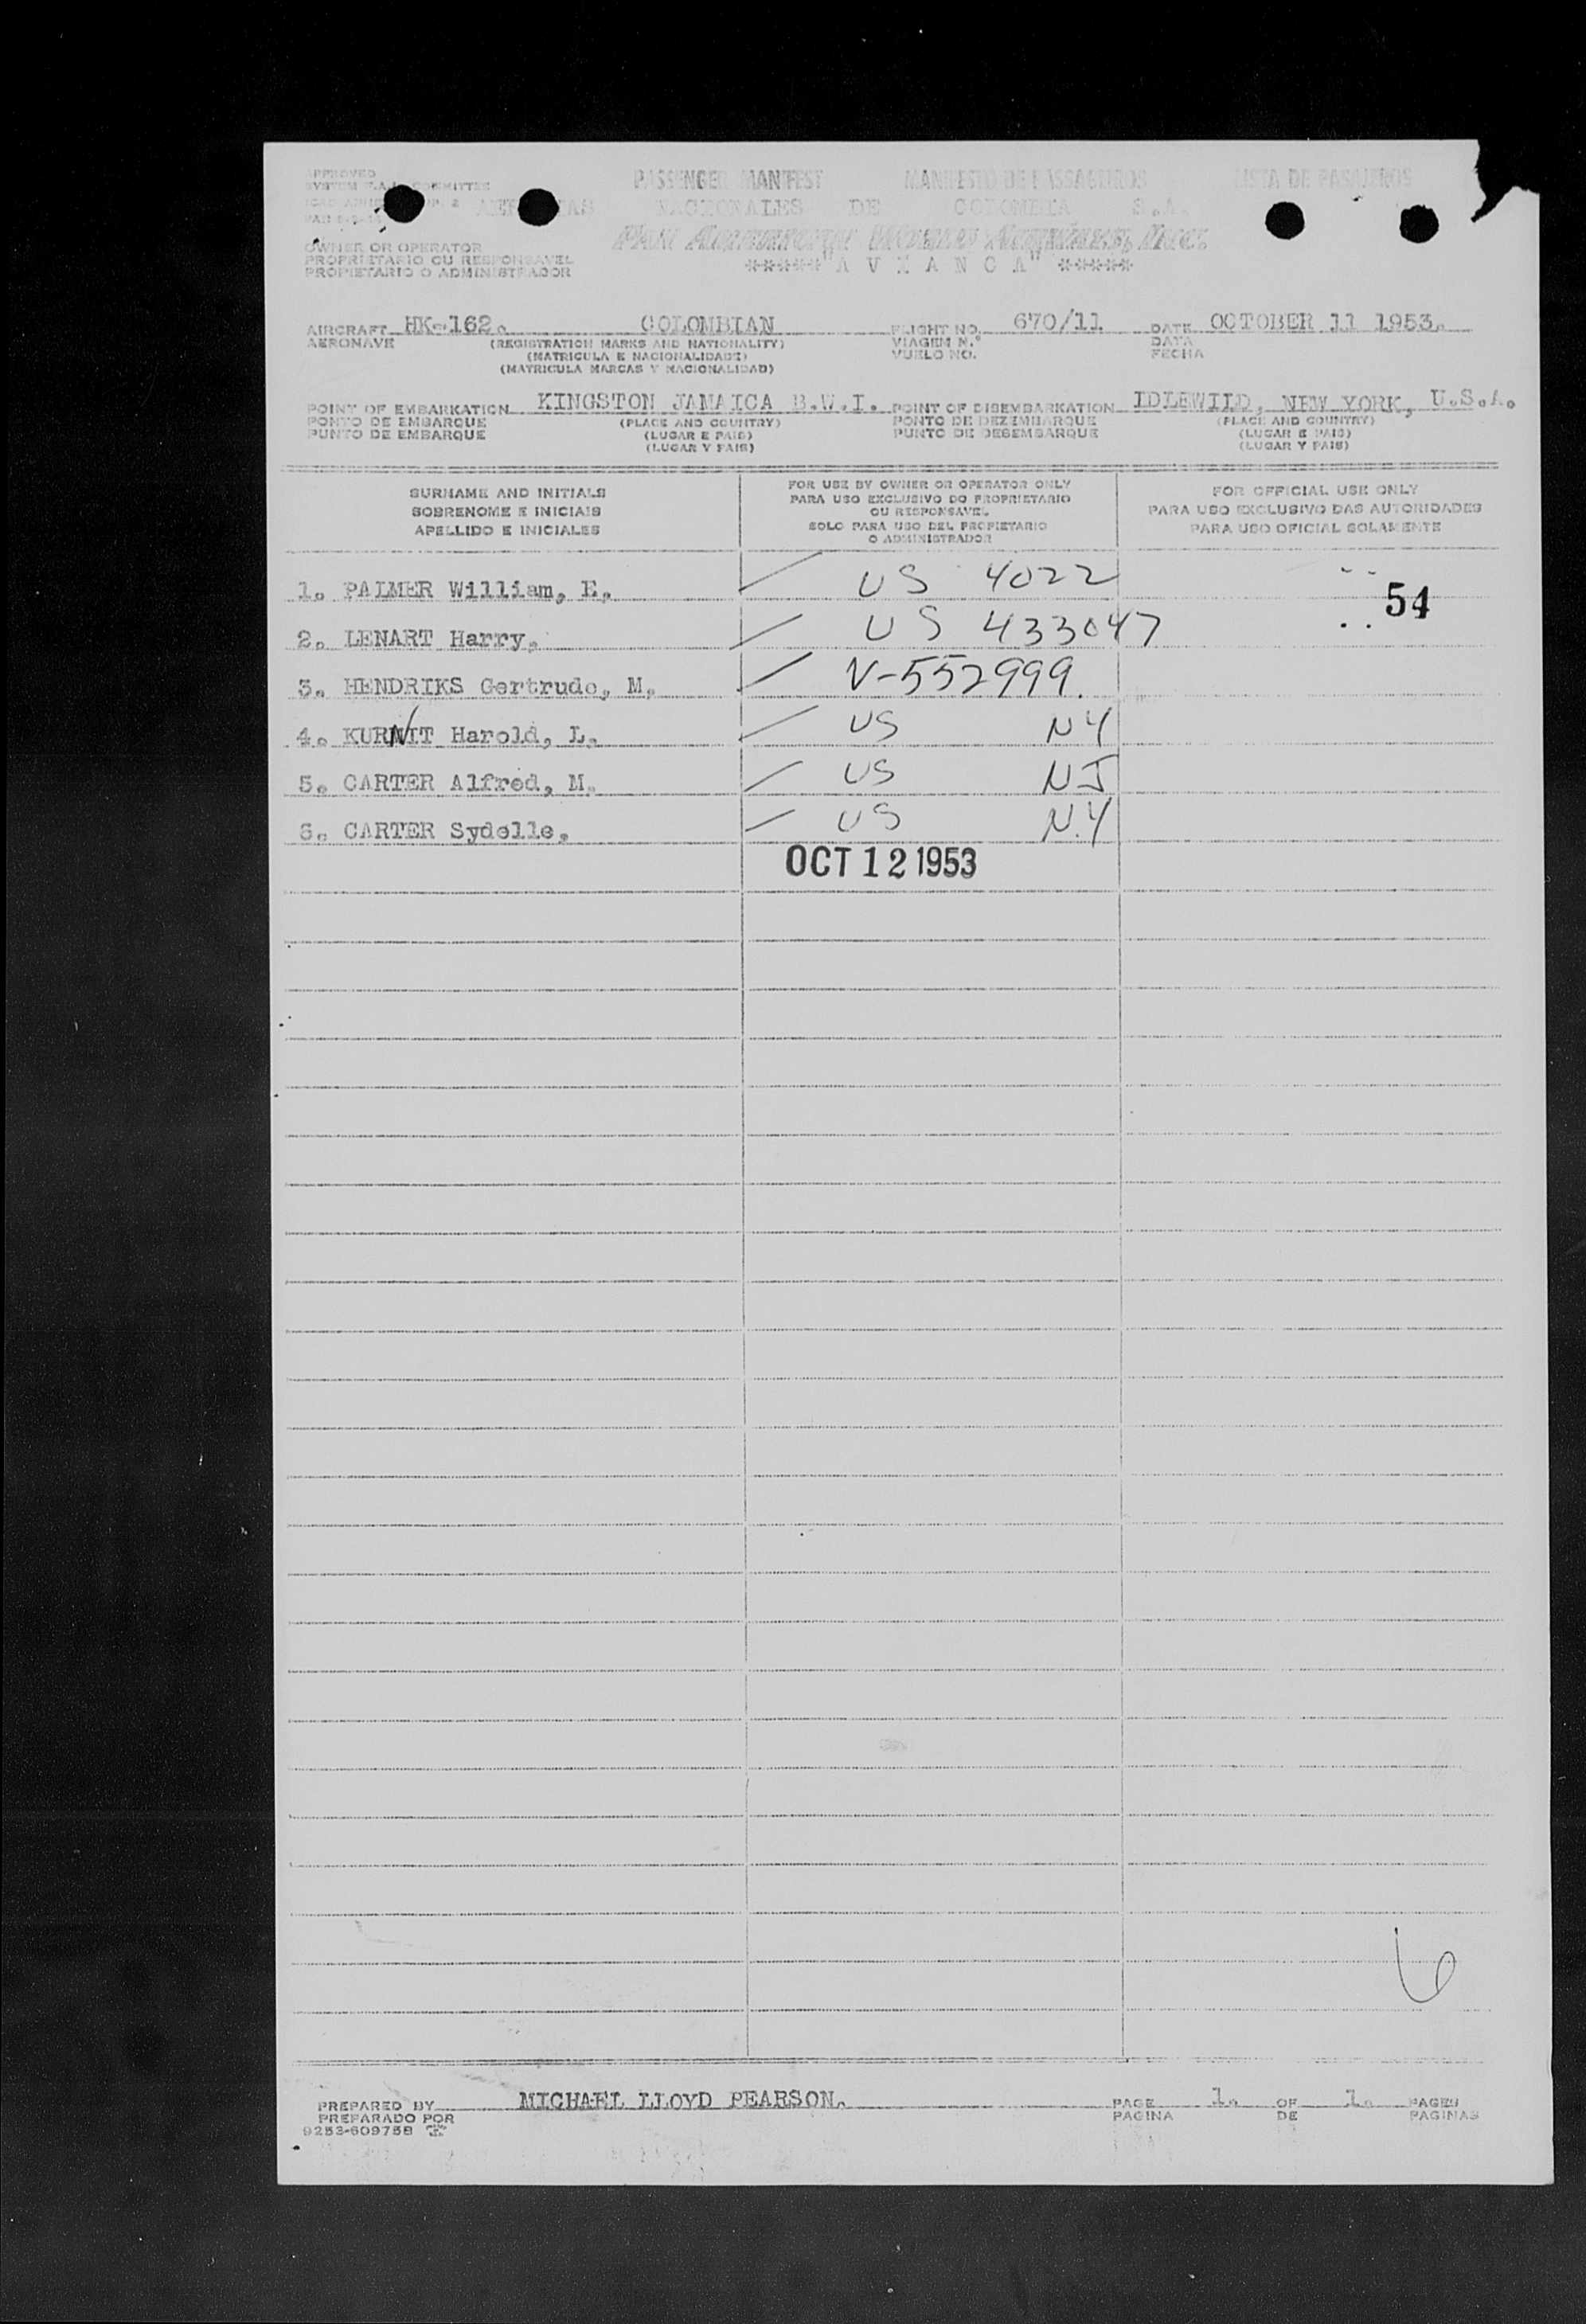 APPROVED
PASSENGER MANIFEST MANIFESTO DE PASSAGEIROS LISTA DE PASAJEROS
NACIONALES DE COLOMBIA S.A.
OWNER OR OPERATOR
PROPRIETARIO OU RESPONSAVEL
PROPIETARIO O ADMINISTRADOR
*****"A V I A N C A"*****
AIRCRAFT HK-162. COLOMBIAN FLIGHT NO. 670/11 DATE OCTOBER 11 1953.
AERONAVE (REGISTRATION MARKS AND NATIONALITY) VIAGEM N.º DATA
(MATRICULA E NACIONALIDADE) VUELO NO. FECHA
(MATRICULA MARCAS Y NACIONALIDAD)
POINT OF EMBARKATION KINGSTON JAMAICA B.W.I. POINT OF DISEMBARKATION IDLEWILD, NEW YORK, U.S.A.
PONTO DE EMBARQUE (PLACE AND COUNTRY) PONTO DE DEZEMBARQUE (PLACE AND COUNTRY)
PUNTO DE EMBARQUE (LUGAR E PAIS) PUNTO DE DESEMBARQUE (LUGAR E PAIS)
(LUGAR Y PAIS) (LUGAR Y PAIS)
SURNAME AND INITIALS
SOBRENOME E INICIAIS
APELLIDO E INICIALES
FOR USE BY OWNER OR OPERATOR ONLY
PARA USO EXCLUSIVO DO PROPRIETARIO
OU RESPONSAVEL
SOLO PARA USO DEL PROPIETARIO
O ADMINISTRADOR
FOR OFFICIAL USE ONLY
PARA USO EXCLUSIVO DAS AUTORIDADES
PARA USO OFICIAL SOLAMENTE
1. PALMER William, E. US 4022
54
2. LENART Harry. US 433047
3. HENDRIKS Gertrude, M. V-552999.
4. KURNIT Harold, L. US NY
5. CARTER Alfred, M. US NJ
6. CARTER Sydelle. US N.Y
OCT 12 1953
6
PREPARED BY MICHAEL LLOYD PEARSON. PAGE 1. OF 1. PAGES
PREPARADO POR PAGINA DE PAGINAS
9253-609758